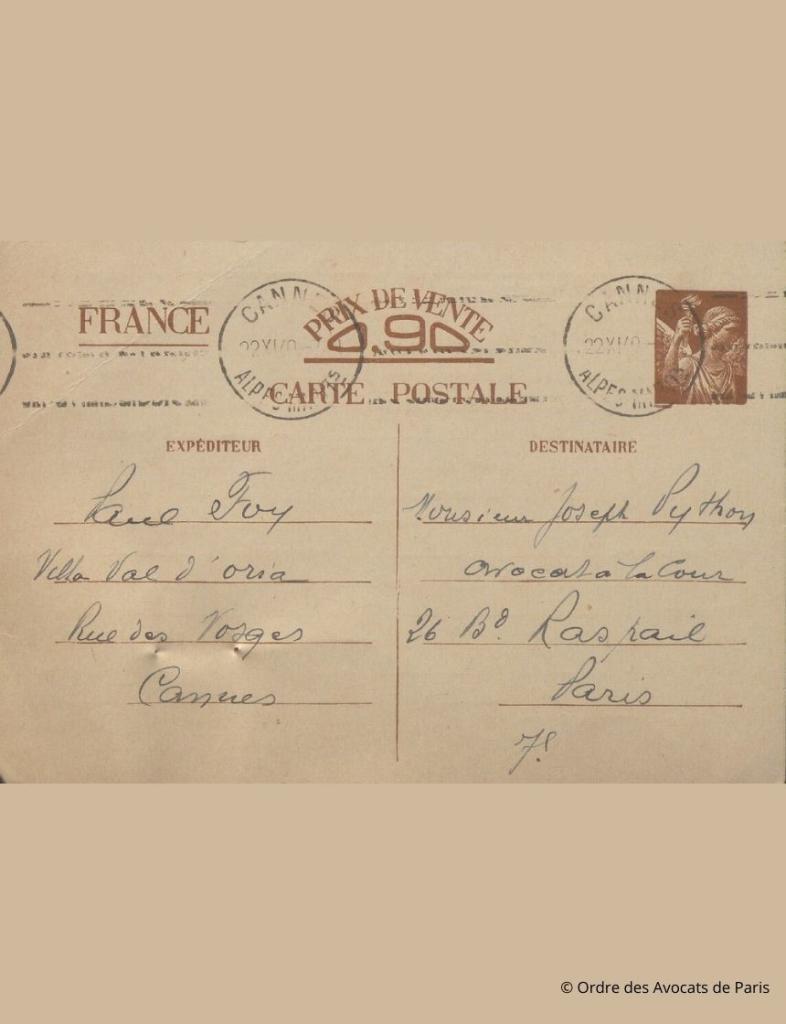 FRANCE
PRIX DE VENTE
0,90
CARTE POSTALE
CANNES
22 XI 40
ALPES MMES
CANNES
22 XI 40
ALPES MMES
EXPÉDITEUR
Paul Foy
Villa Val d'oria
Rue des Vosges
Cannes
DESTINATAIRE
Monsieur Joseph Python
avocat à la Cour
26 Bd. Raspail
Paris
7e
© Ordre des Avocats de Paris